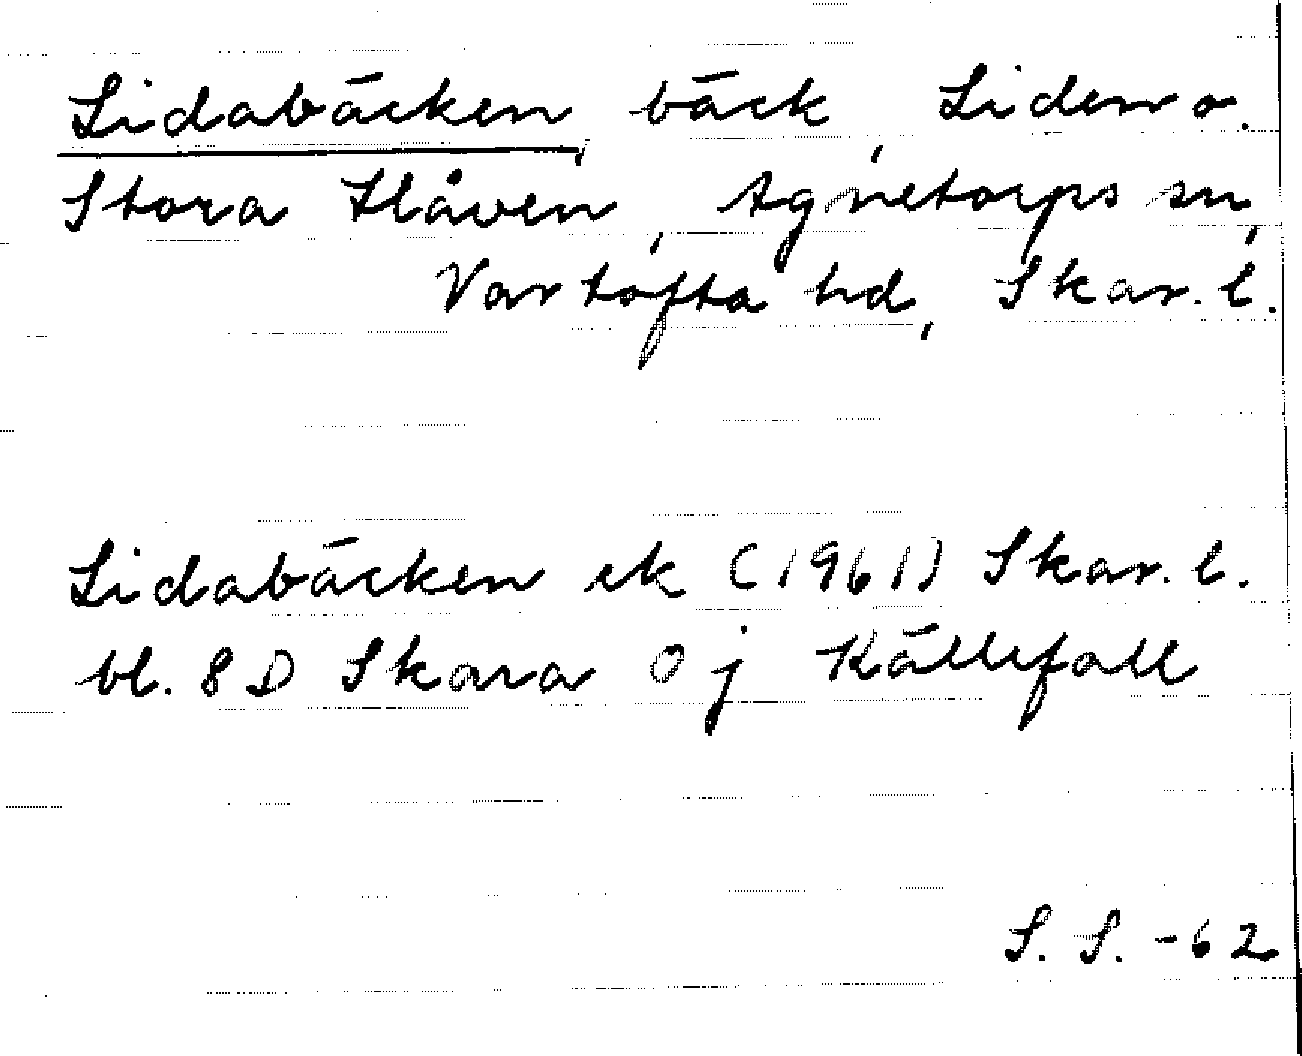 Lidabäcken, bäck, Liden o.
Stora Håven, Agnetorps sn,
Vartofta hd, Skar. l.
Lidabäcken ek (1961) Skar. l.
bl. 8 D Skara 0 j Källefall
S. S. -62